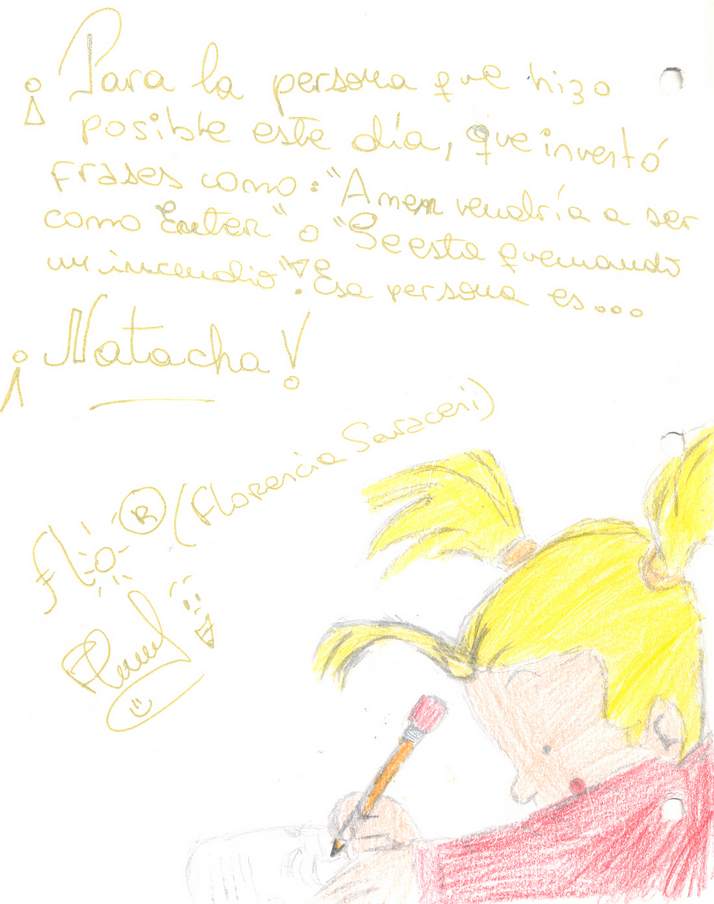 ¡Para la persona que hizo
posible este día, que inventó
frases como: "Amen vendría a ser
como Enter" o "Se esta quemando
un incendio"! Esa persona es...
¡Natacha!
(Florencia Saraceni)
Flo ®